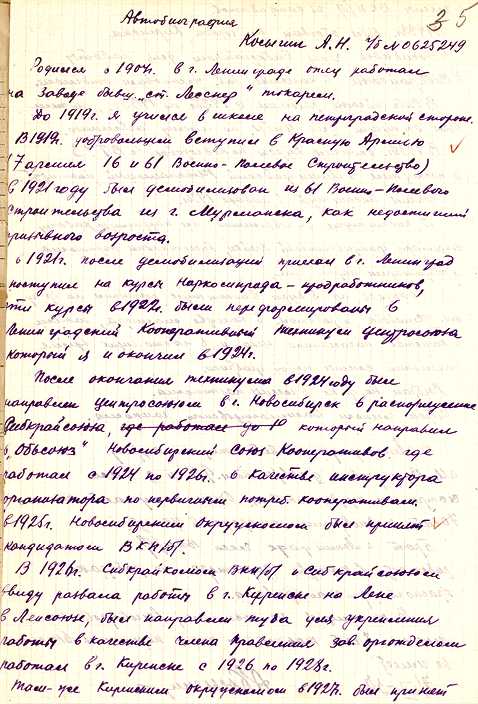 35
Автобиография
Косыгин А.Н. п/б № 0625249
Родился в 1904г. в г. Ленинграде отец работал
на заводе бывш. „ст. Леснер" токарем.
До 1919г. я учился в школе на петроградской стороне.
В 1919г. добровольцем вступил в Красную Армию
(7 армия 16 и 61 Военно-Полевое Строительство)
В 1921 году был демобилизован из 61 Военно-Полевого
Строительства из г. Мурманска, как недостигший
призывного возроста.
в 1921г. после демобилизации приехал в г. Ленинград
поступил на курсы Наркомпрода - продработников,
эти курсы в 1922г. были переформированы в
Ленинградский Кооперативный техникум Центросоюза
который я и окончил в 1924г.
После окончания техникума в 1924 году был
направлен Центросоюзом в г. Новосибирск в распоряжение
Сибкрайсоюза, где работал до который направил
в „Обьсоюз" Новосибирский Союз Кооперативов. где
работал с 1924 по 1926г. в качестве инструктора
организатора по первичным потреб. кооперативам.
в 1925г. Новосибирским Окружкомом был принят
кандидатом ВКП/б/.
В 1926г. Сибкрайкомом ВКП/б/ и Сибкрайсоюзом
ввиду развала работы в г. Киренске на Лене
в Ленсоюзе, был направлен туда для укрепления
работы в качестве члена правления зав. орготделом
работал в г. Киренске с 1926 по 1928г.
Там-же Киренским окружкомом в 1927г. был принят